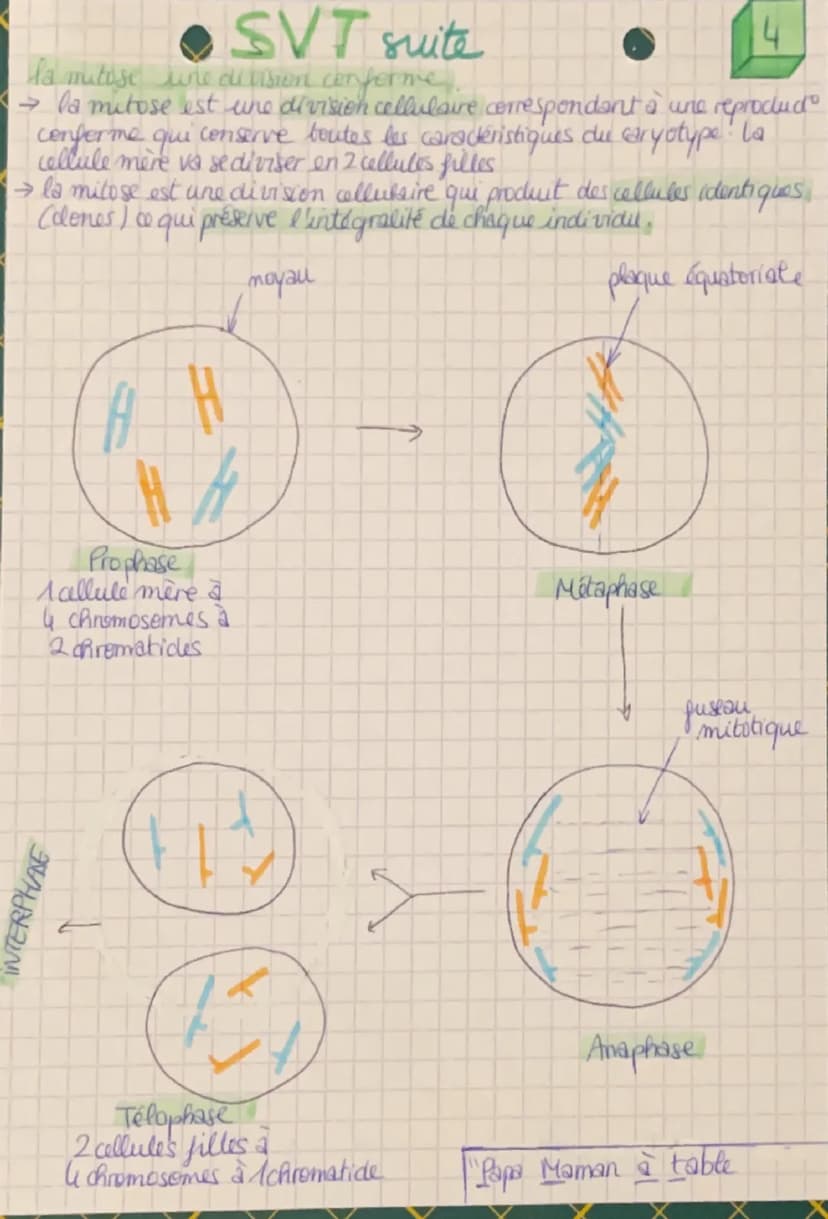 SVT suite
4
la mitose une division conforme.
→ la mitose est une division cellulaire correspondant à une reproduct°
conforme qui conserve toutes les caractéristiques du caryotype. la
cellule mère va se diviser en 2 cellules filles
→ la mitose est une division cellulaire qui produit des cellules identiques
(clones) ce qui préserve l'intégralité de chaque individu.
noyau
plaque équatoriale
Prophase
1 cellule mère à
4 chromosomes à
2 chromatides
Métaphase
fuseau
mitotique
INTERPHASE
Anaphase
Télophase
2 cellules filles à
4 chromosomes à 1 chromatide
"Papa Maman à table